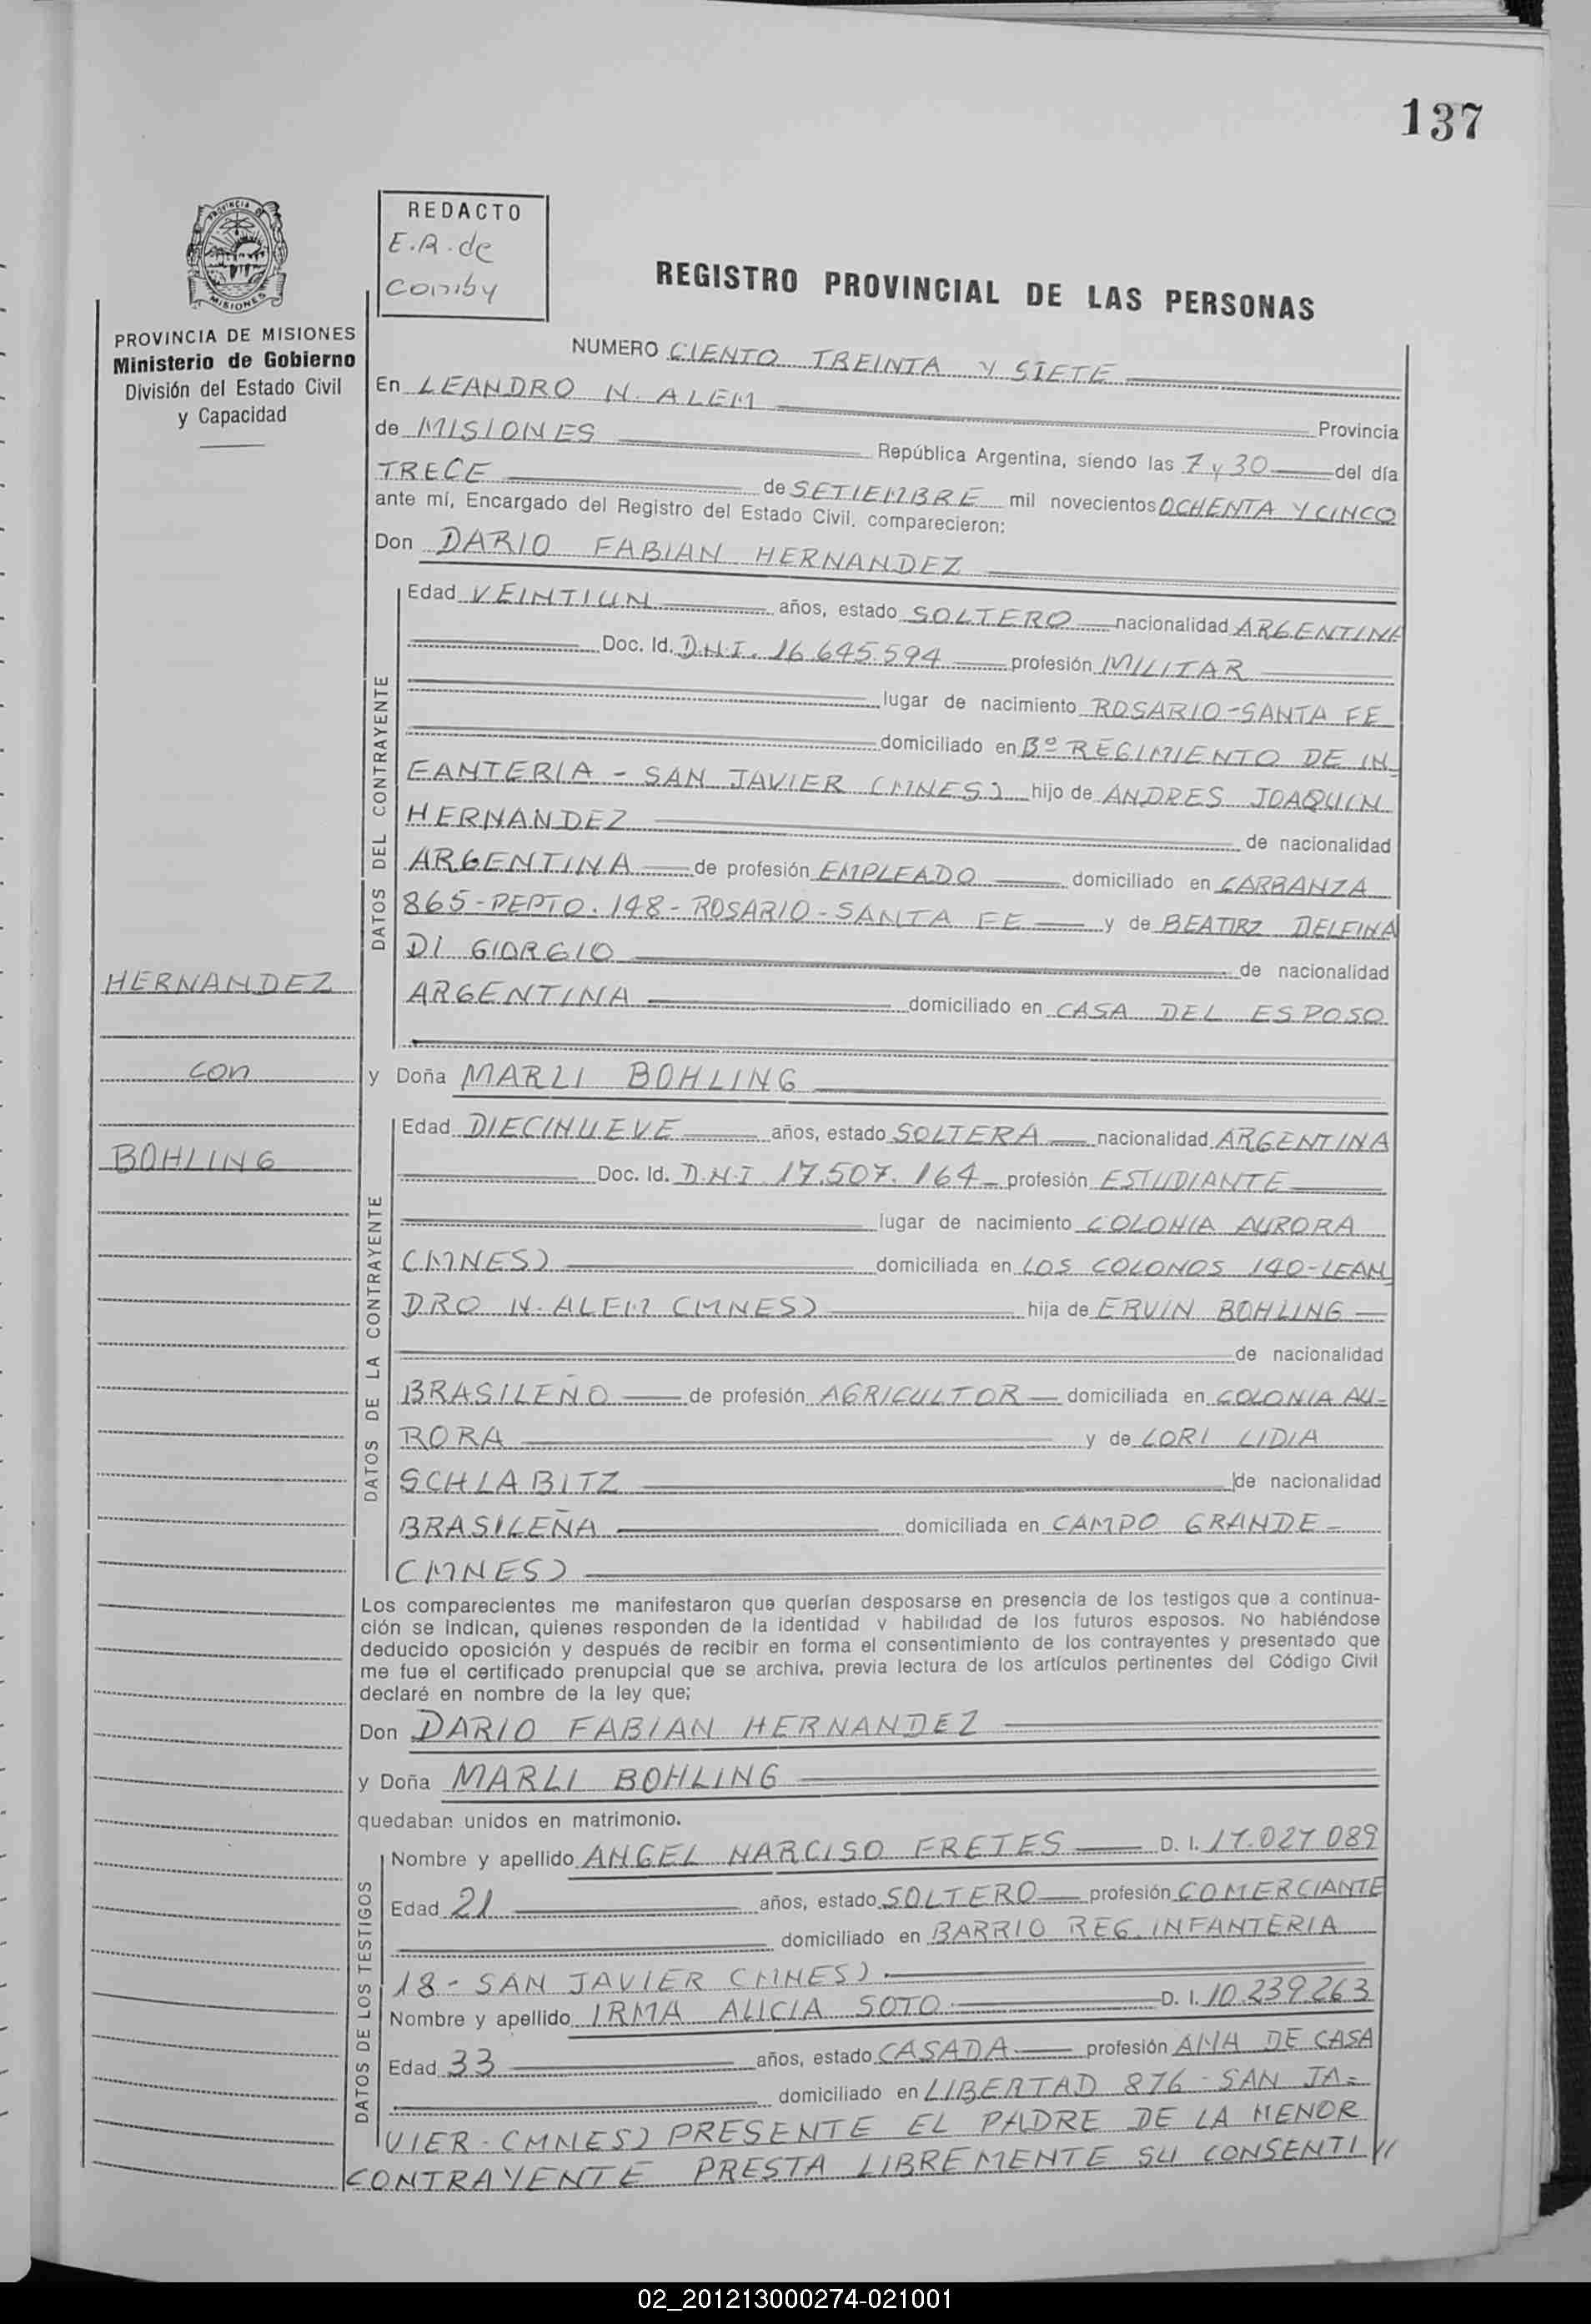 137
PROVINCIA DE
MISIONES
PROVINCIA DE MISIONES
Ministerio de Gobierno
División del Estado Civil
y Capacidad
REDACTO
E.R. de
REGISTRO PROVINCIAL DE LAS PERSONAS
NUMERO CIENTO TREINTA Y SIETE
En LEANDRO N. ALEM Provincia
de MISIONES República Argentina, siendo las 7 y 30 del día
TRECE de SETIEMBRE mil novecientos OCHENTA Y CINCO
ante mí, Encargado del Registro del Estado Civil, comparecieron:
Don DARIO FABIAN HERNANDEZ
DATOS DEL CONTRAYENTE
Edad VEINTIUN años, estado SOLTERO nacionalidad ARGENTINA
Doc. Id. D.N.I. 16.645.594 profesión MILITAR
lugar de nacimiento ROSARIO-SANTA FE
domiciliado en Bº REGIMIENTO DE IN
FANTERIA - SAN JAVIER (MNES) hijo de ANDRES JOAQUIN
HERNANDEZ de nacionalidad
ARGENTINA de profesión EMPLEADO domiciliado en CARRANZA
865-DEPTO. 148-ROSARIO-SANTA FE y de BEATIRZ DELFINA
DI GIORGIO de nacionalidad
ARGENTINA domiciliado en CASA DEL ESPOSO
HERNANDEZ
con
BOHLING
y Doña MARLI BOHLING
DATOS DE LA CONTRAYENTE
Edad DIECINUEVE años, estado SOLTERA nacionalidad ARGENTINA
Doc. Id. D.N.I 17.507.164 profesión ESTUDIANTE
lugar de nacimiento COLONIA AURORA
(MNES) domiciliada en LOS COLONOS 140-LEAN
DRO N. ALEM (MNES) hija de ERVIN BOHLING
de nacionalidad
BRASILEÑO de profesión AGRICULTOR domiciliada en COLONIA AU-
RORA y de LORI LIDIA
SCHLABITZ de nacionalidad
BRASILEÑA domiciliada en CAMPO GRANDE-
(MNES)
Los comparecientes me manifestaron que querían desposarse en presencia de los testigos que a continua-
ción se indican, quienes responden de la identidad y habilidad de los futuros esposos. No habiéndose
deducido oposición y después de recibir en forma el consentimiento de los contrayentes y presentado que
me fue el certificado prenupcial que se archiva, previa lectura de los artículos pertinentes del Código Civil
declaré en nombre de la ley que;
Don DARIO FABIAN HERNANDEZ
y Doña MARLI BOHLING
quedaban unidos en matrimonio.
DATOS DE LOS TESTIGOS
Nombre y apellido ANGEL NARCISO FRETES D. I. 17.027.089
Edad 21 años, estado SOLTERO profesión COMERCIANTE
domiciliado en BARRIO REG. INFANTERIA
18 - SAN JAVIER (MNES).
Nombre y apellido IRMA ALICIA SOTO D. I. 10.239.263
Edad 33 años, estado CASADA profesión AMA DE CASA
domiciliado en LIBERTAD 876 - SAN JA=
VIER - (MNES) PRESENTE EL PADRE DE LA MENOR
CONTRAYENTE PRESTA LIBREMENTE SU CONSENTI //
02_201213000274-021001